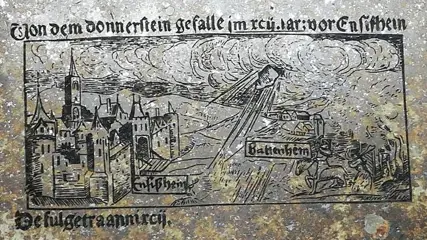 Von dem donnerstein gefalle im xcij. iar: vor Ensisheim
Ensisheim
Battenheim
De fulgetra anni xcij.